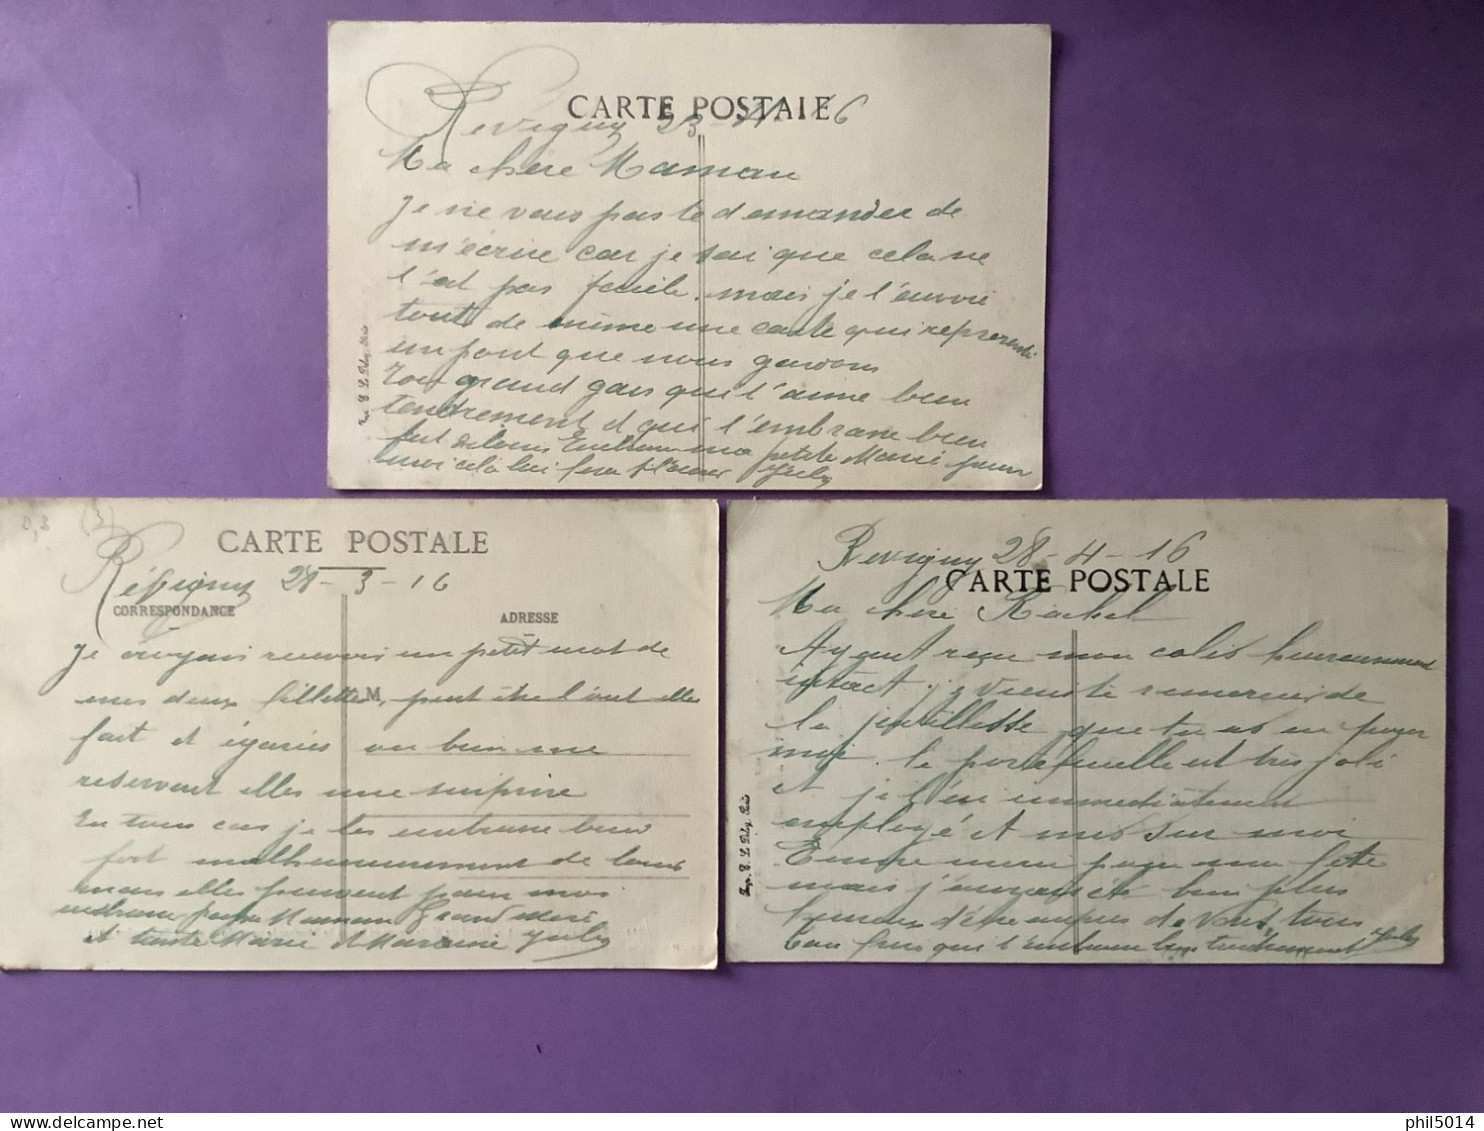 CARTE POSTALE
Revigny 23-4-16
Ma chere Maman
Je ne veus pas te demander de
m'écrire car je sai que cela ne
t'est pas facile. mais je t'envoie
tout de même une carte qui represente
un pont que nous gardons
Ton grand gars qui t'aime bien
tendrement et qui t'embrasse bien
fort de loin Embrasse ma petite Marie pour
moi cela lui fera Jules
Imp. E. Le Deley, Paris
0,8 (3)
CARTE POSTALE
Révigny 28-3-16
CORRESPONDANCE
ADRESSE
Je croyais recevoir un petit mot de
mes deux fillettes, peut être l'ont elles
M
fait et égarées ou bien me
reservent elles une surprise
En tous cas je les embrasse bien
fort malheureusement de loin
mais elles peuvent pour moi
embrasser Maman Grand mère
et tante Marie et Marraine Jules
Revigny 28-4-16
CARTE POSTALE
Ma chere Rachel
Ayant reçu mon colis heureusement
intact. je viens te remercier de
la gentillesse que tu as eu pour
moi. le portefeuille est très joli
et je l'ai immediatement
employé et mis sur moi
mais j'aurais été bien plus
heureux d'être auprès de vous tous
Ton frère qui t'embrasse bien tendrement Jules
Imp. E. Le Deley, Paris
phil5014